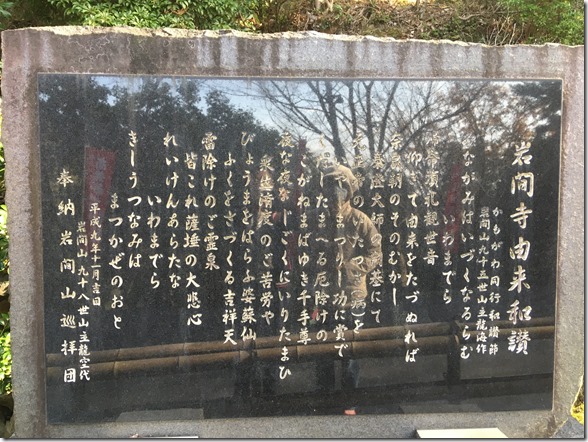 岩間寺由来和讃
かもがわ同行和讃師
岩間山九十五世山主龍海作
ながみはいづくなるらむ
いわまでら
観世音
仰いで由来をたづぬれば
奈良朝のそのむかし
泰澄大師
まつり功に賞で
たまへる厄除けの
こがねまばゆき千手尊
夜な夜なじごくにいりたまひ
永遠済度のご苦労や
ひょうまをはらふ婆藪仙
ふくをさづくる吉祥天
雷除けのご霊泉
皆これ薩埵の大悲心
れいけんあらたな
いわまでら
きしうつなみは
まつかぜのおと
平成九年十一月吉日
岩間山九十八世山主龍空代
奉納 岩間山巡拝団